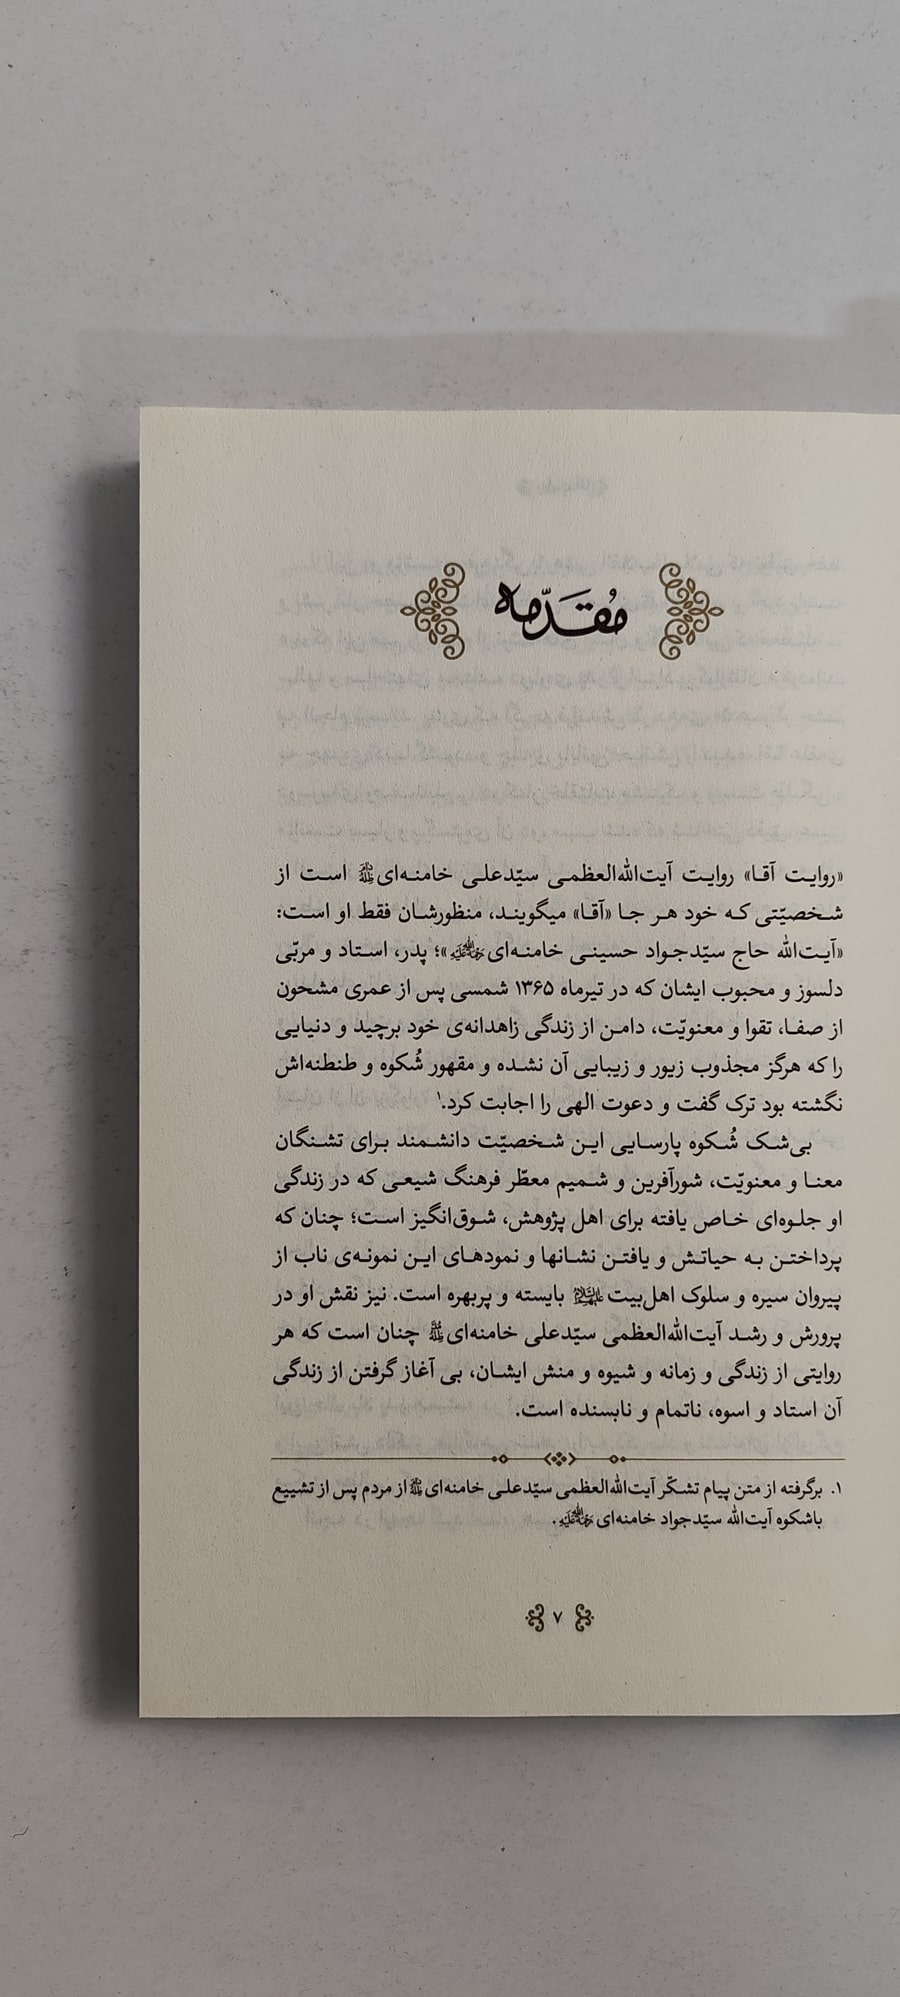 مُقَدّمه
«روایت آقا» روایت آیت‌الله‌العظمی سیّدعلی خامنه‌ای است از
شخصیّتی که خود هر جا «آقا» میگویند، منظورشان فقط او است:
«آیت‌الله حاج سیّدجواد حسینی خامنه‌ای»؛ پدر، استاد و مربّی
دلسوز و محبوب ایشان که در تیرماه ۱۳۶۵ شمسی پس از عمری مشحون
از صفا، تقوا و معنویّت، دامن از زندگی زاهدانه‌ی خود برچید و دنیایی
را که هرگز مجذوب زیور و زیبایی آن نشده و مقهور شُکوه و طنطنه‌اش
نگشته بود ترک گفت و دعوت الهی را اجابت کرد.۱
بی‌شک شُکوه پارسایی این شخصیّت دانشمند برای تشنگان
معنا و معنویّت، شورآفرین و شمیم معطّر فرهنگ شیعی که در زندگی
او جلوه‌ای خاص یافته برای اهل پژوهش، شوق‌انگیز است؛ چنان که
پرداختن به حیاتش و یافتن نشانها و نمودهای این نمونه‌ی ناب از
پیروان سیره و سلوک اهل‌بیت علیهم‌السلام بایسته و پربهره است. نیز نقش او در
پرورش و رشد آیت‌الله‌العظمی سیّدعلی خامنه‌ای چنان است که هر
روایتی از زندگی و زمانه و شیوه و منش ایشان، بی آغاز گرفتن از زندگی
آن استاد و اسوه، ناتمام و نابسنده است.
۱. برگرفته از متن پیام تشکّر آیت‌الله‌العظمی سیّدعلی خامنه‌ای از مردم پس از تشییع
باشکوه آیت‌الله سیّدجواد خامنه‌ای.
۷